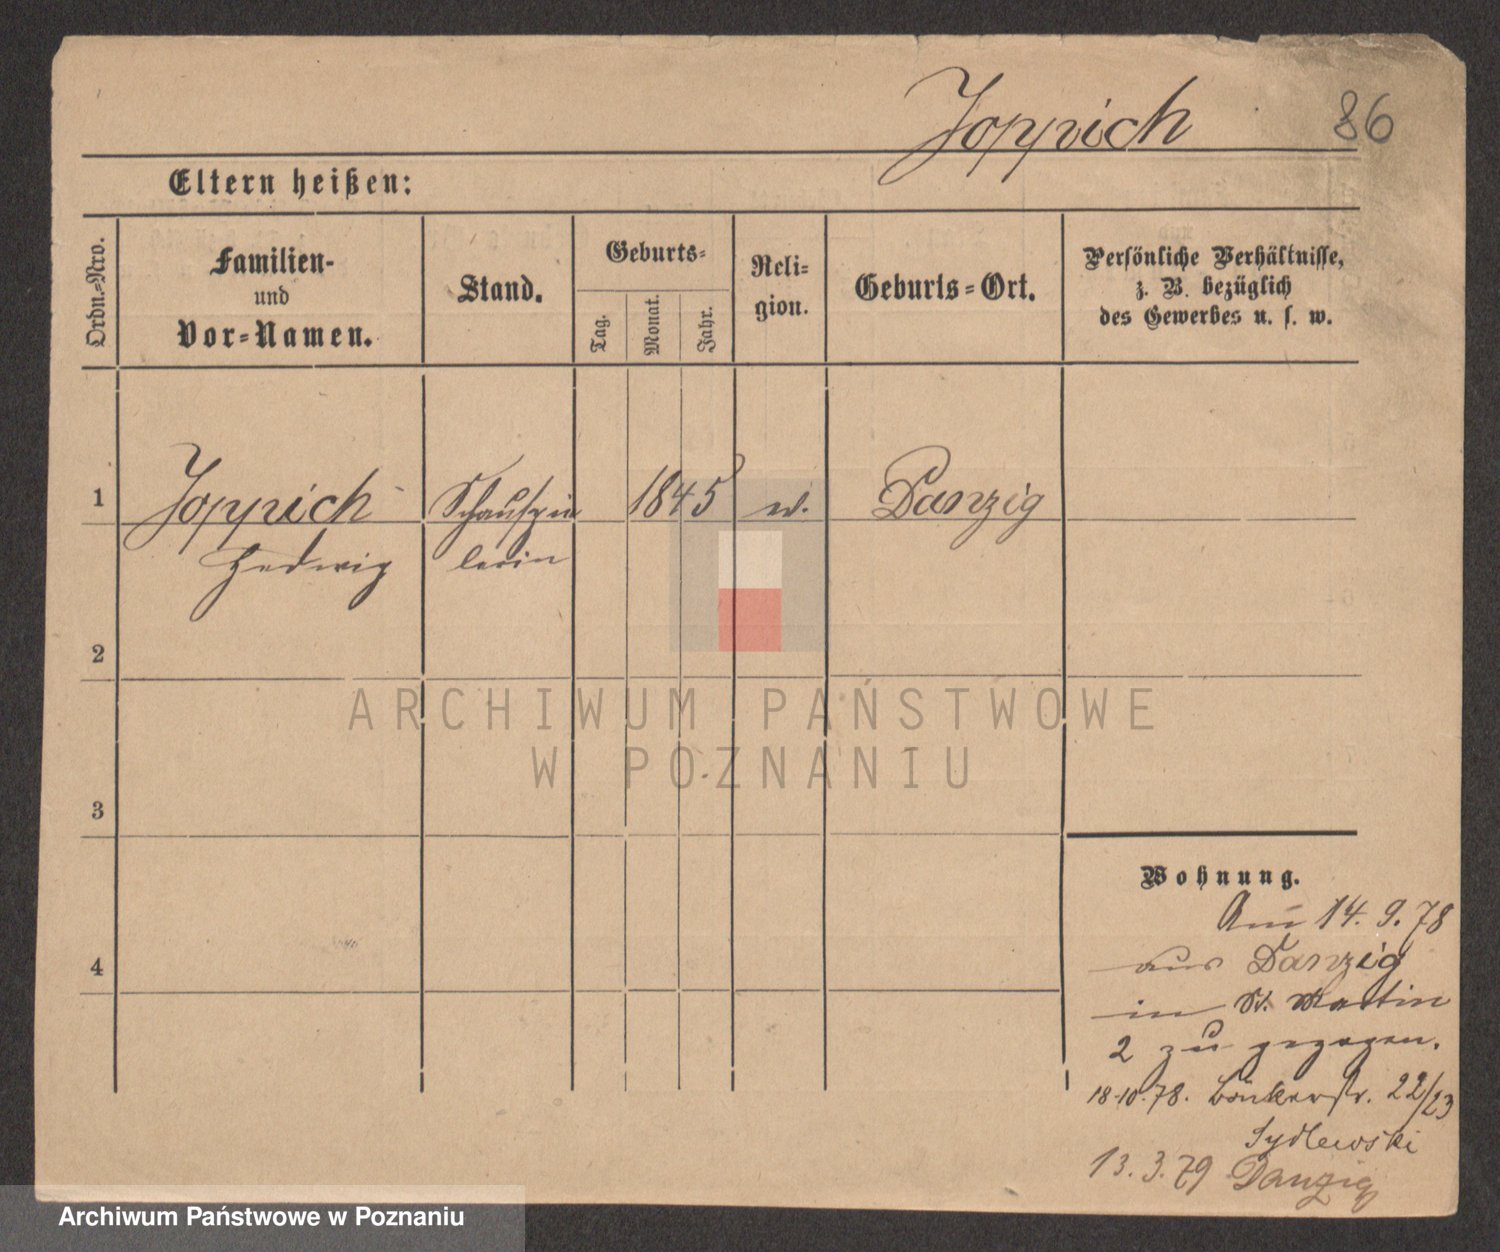 Joppich 86
Eltern heißen:
Ordn.-Nro.
Familien-
und
Vor-Namen.
Stand.
Geburts-
Tag.
Monat.
Jahr.
Reli-
gion.
Geburts-Ort.
Persönliche Verhältnisse,
z. B. bezüglich
des Gewerbes u. s. w.
1 Joppich Schauspie 1845 Danzig
Hedwig lerin
2
3
4
Wohnung.
Am 14. 9. 78
aus Danzig
in St. Martin
2 zu gezogen.
18.10.78. Bäckerstr. 22/23
Sydlewski
13. 3. 79 Danzig
ARCHIWUM PAŃSTWOWE
W POZNANIU
Archiwum Państwowe w Poznaniu